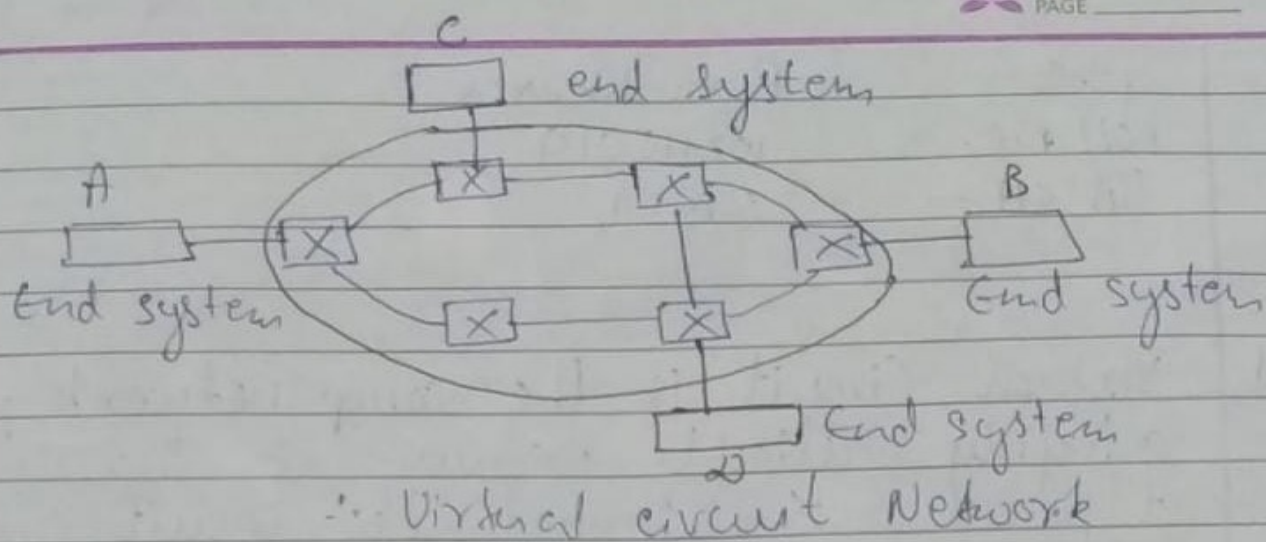 PAGE
C
end system
A
B
X
X
X
X
End system
End system
X
X
End system
D
∴ Virtual circuit Network